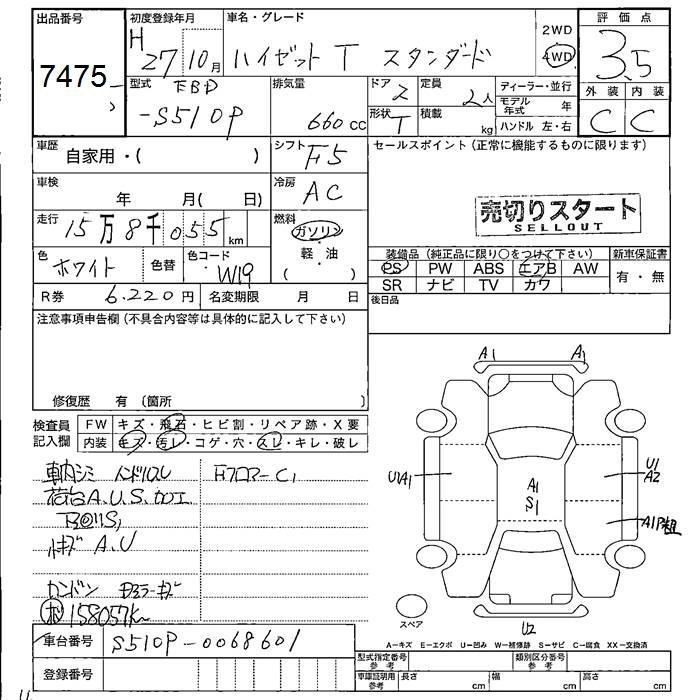 出品番号
7475
初度登録年月
H
27 10月
車名・グレード
ハイゼット T スタンダード
2WD
4WD
評価点
3.5
外装 内装
C C
型式
EBD
-S510P
排気量
660 cc
ドア
2
定員
2人
形状
T
積載
kg
ディーラー・並行
モデル年式 年
ハンドル 左・右
車歴
自家用・( )
シフト
F5
車検
年 月( 日)
冷房
AC
走行
15万8千055 km
燃料
ガソリン
軽・油
( )
色
ホワイト
色替
色コード
W19
R券 6.220円
名変期限 月 日
セールスポイント (正常に機能するものに限ります)
売切りスタート
SELLOUT
装備品 (純正品に限り○をつけて下さい)
新車保証書
PS PW ABS エアB AW
SR ナビ TV カワ
有・無
後日品
注意事項申告欄 (不具合内容等は具体的に記入して下さい)
修復歴 有 (箇所 )
検査員記入欄
FW キズ・飛石・ヒビ割・リペア跡・X要
内装 キズ・汚レ・コゲ・穴・スレ・キレ・破レ
車内シミ ハンドルスレ
荷台A.U.S.カエ
A.U
158057km
車台番号
S510P-0068601
登録番号
A1 A1
U1A1
A1
S1
U1
A2
A1P粗
スペア
U2
A-キズ E-エクボ U-凹み W-補修跡 S-サビ C-腐食 XX-交換済
型式指定番号
参考
類別区分番号
参考
車庫証明用
参考
長さ cm
幅 cm
高さ cm